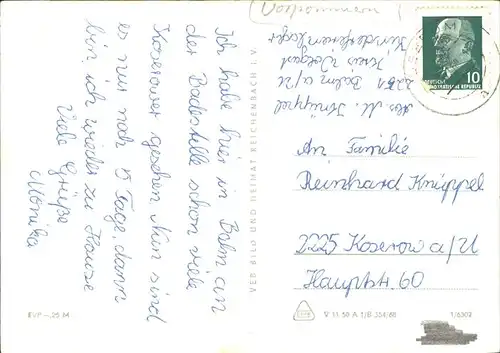 Ich habe hier in Balm an
der Badestelle schon viele
Koserower gesehen. Nun sind
es nur noch 5 Tage, dann
bin ich wieder zu Hause
Viele Grüße
Monika
EVP –,25 M
VEB BILD UND HEIMAT REICHENBACH I. V.
Abs. M. Knüppel
2251 Balm a/U
Kreis Wolgast
Kinderferienlager
DEUTSCHE
DEMOKRATISCHE REPUBLIK
10
An Familie
Reinhard Knüppel
2225 Koserow a/U
Hauptstr. 60
V 11 50 A 1/B 354/68
1/6302